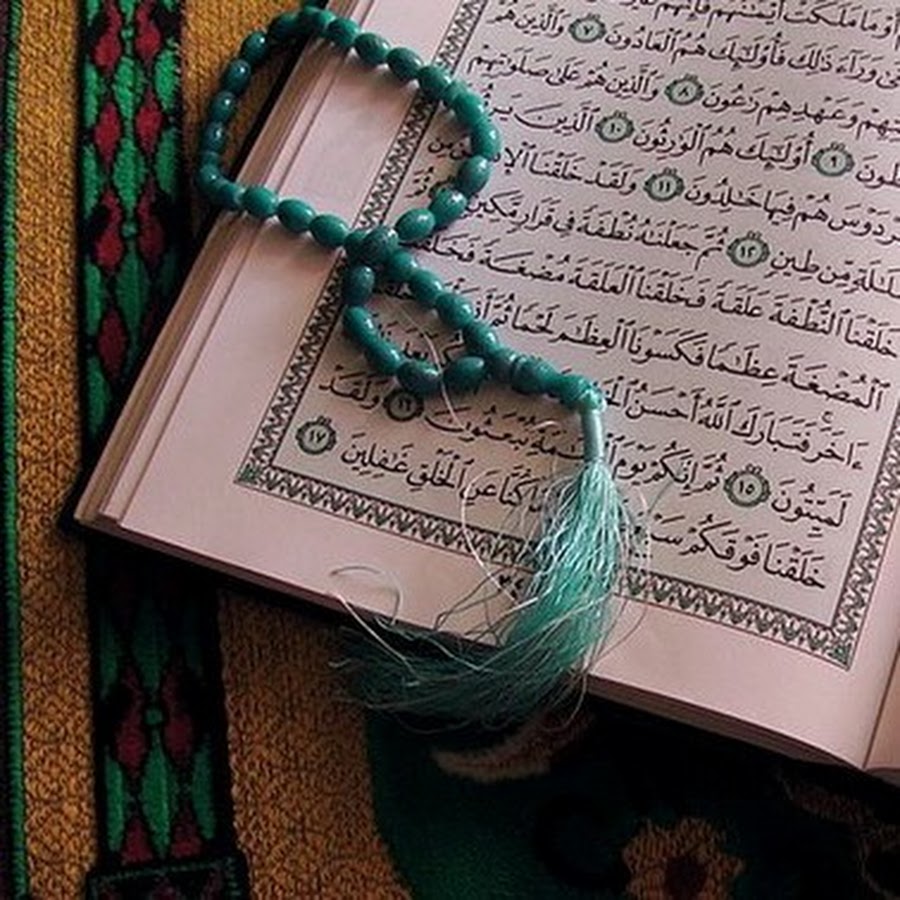 أَوْ مَا مَلَكَتْ أَيْمَـٰنُهُمْ فَإِنَّهُمْ
وَرَآءَ ذَٰلِكَ فَأُو۟لَـٰٓئِكَ هُمُ ٱلْعَادُونَ ٧ وَٱلَّذِينَ هُمْ
وَعَهْدِهِمْ رَٰعُونَ ٨ وَٱلَّذِينَ هُمْ عَلَىٰ صَلَوَٰتِهِمْ
٩ أُو۟لَـٰٓئِكَ هُمُ ٱلْوَٰرِثُونَ ١٠ ٱلَّذِينَ
هُمْ فِيهَا خَـٰلِدُونَ ١١ وَلَقَدْ خَلَقْنَا مِن
مِّن طِينٍ ١٢ ثُمَّ جَعَلْنَـٰهُ نُطْفَةً فِى قَرَارٍ مَّكِينٍ ثُمَّ
خَلَقْنَا ٱلنُّطْفَةَ عَلَقَةً فَخَلَقْنَا ٱلْعَلَقَةَ مُضْغَةً
ٱلْمُضْغَةَ عِظَـٰمًا فَكَسَوْنَا ٱلْعِظَـٰمَ لَحْمًا ثُمَّ
ءَاخَرَ فَتَبَارَكَ ٱللَّهُ أَحْسَنُ بَعْدَ
لَمَيِّتُونَ ١٥ ثُمَّ إِنَّكُمْ يَوْمَ تُبْعَثُونَ ١٦ وَلَقَدْ
خَلَقْنَا فَوْقَكُمْ كُنَّا عَنِ ٱلْخَلْقِ غَـٰفِلِينَ ١٧